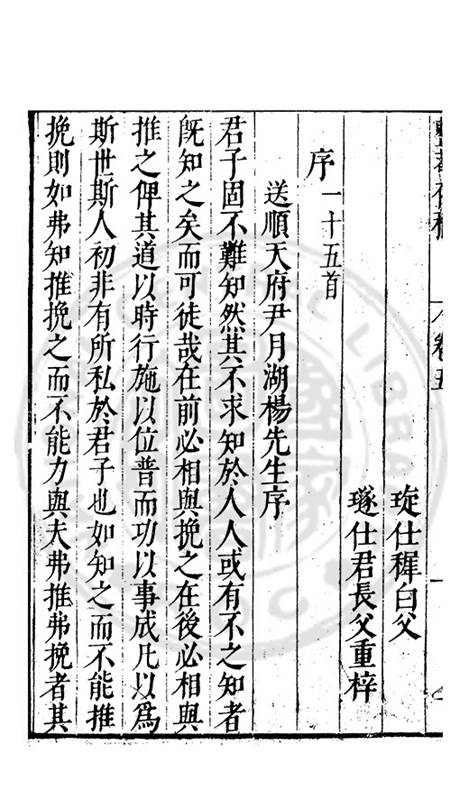 卷五
琁仕穉白父
璲仕君長父重梓
序一十五首
送順天府尹月湖楊先生序
君子固不難知然其不求知於人人或有不之知者
旣知之矣而可徒哉在前必相與挽之在後必相與
推之俾其道以時行施以位普而功以事成凡以爲
斯世斯人初非有所私於君子也如知之而不能推
挽則如弗知推挽之而不能力與夫弗推弗挽者其